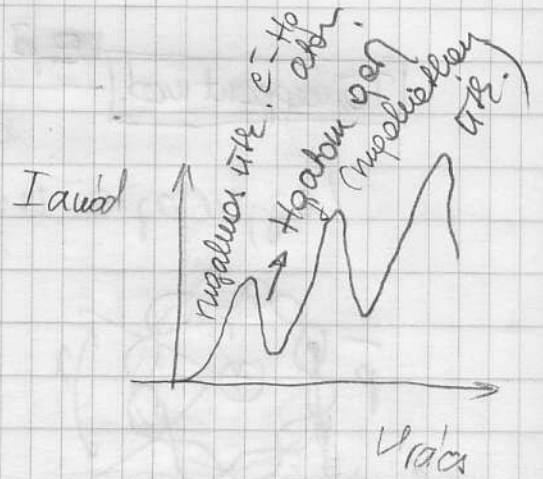 I anód
rugalmas ütk. e⁻-Hg
atom.
→ Hgatom gerj
rugalmatlan
ütk.)
Vrács